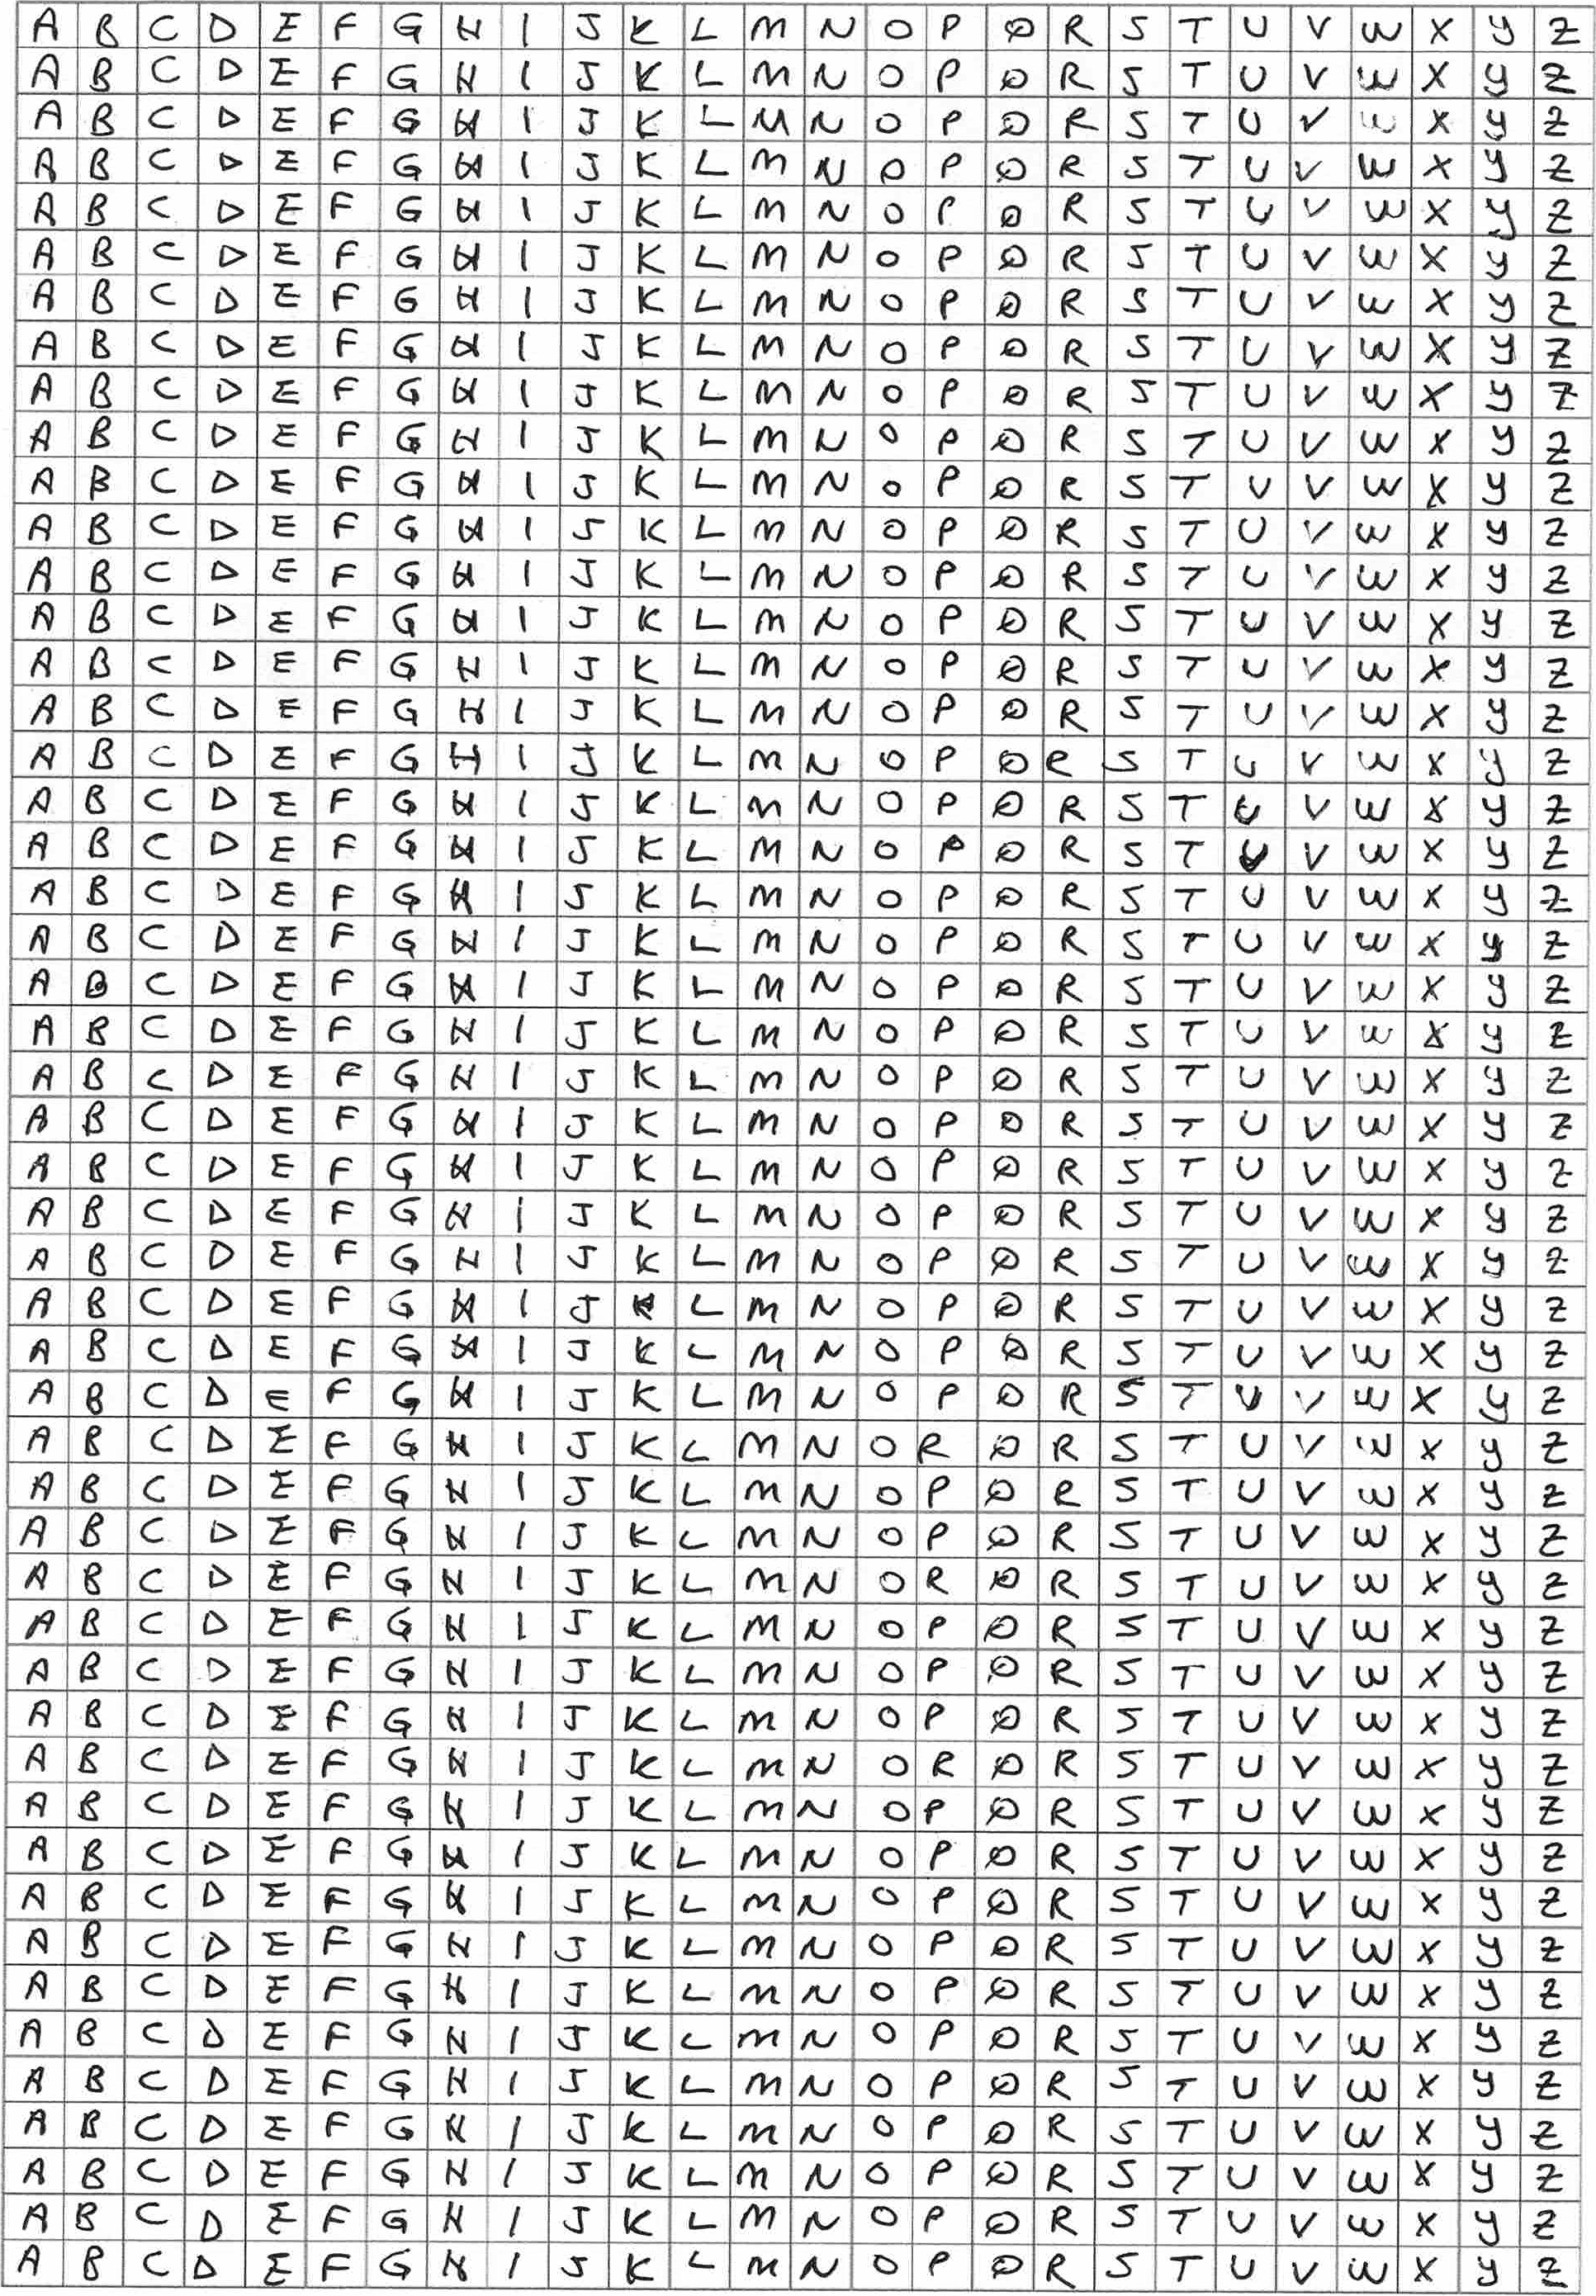 A B C D E F G H I J K L M N O P Q R S T U V W X Y Z
A B C D E F G H I J K L M N O P Q R S T U V W X Y Z
A B C D E F G H I J K L M N O P Q R S T U V W X Y Z
A B C D E F G H I J K L M N O P Q R S T U V W X Y Z
A B C D E F G H I J K L M N O P Q R S T U V W X Y Z
A B C D E F G H I J K L M N O P Q R S T U V W X Y Z
A B C D E F G H I J K L M N O P Q R S T U V W X Y Z
A B C D E F G H I J K L M N O P Q R S T U V W X Y Z
A B C D E F G H I J K L M N O P Q R S T U V W X Y Z
A B C D E F G H I J K L M N O P Q R S T U V W X Y Z
A B C D E F G H I J K L M N O P Q R S T U V W X Y Z
A B C D E F G H I J K L M N O P Q R S T U V W X Y Z
A B C D E F G H I J K L M N O P Q R S T U V W X Y Z
A B C D E F G H I J K L M N O P Q R S T U V W X Y Z
A B C D E F G H I J K L M N O P Q R S T U V W X Y Z
A B C D E F G H I J K L M N O P Q R S T U V W X Y Z
A B C D E F G H I J K L M N O P Q R S T U V W X Y Z
A B C D E F G H I J K L M N O P Q R S T U V W X Y Z
A B C D E F G H I J K L M N O P Q R S T U V W X Y Z
A B C D E F G H I J K L M N O P Q R S T U V W X Y Z
A B C D E F G H I J K L M N O P Q R S T U V W X Y Z
A B C D E F G H I J K L M N O P Q R S T U V W X Y Z
A B C D E F G H I J K L M N O P Q R S T U V W X Y Z
A B C D E F G H I J K L M N O P Q R S T U V W X Y Z
A B C D E F G H I J K L M N O P Q R S T U V W X Y Z
A B C D E F G H I J K L M N O P Q R S T U V W X Y Z
A B C D E F G H I J K L M N O P Q R S T U V W X Y Z
A B C D E F G H I J K L M N O P Q R S T U V W X Y Z
A B C D E F G H I J K L M N O P Q R S T U V W X Y Z
A B C D E F G H I J K L M N O P Q R S T U V W X Y Z
A B C D E F G H I J K L M N O P Q R S T U V W X Y Z
A B C D E F G H I J K L M N O R Q R S T U V W X Y Z
A B C D E F G H I J K L M N O P Q R S T U V W X Y Z
A B C D E F G H I J K L M N O P Q R S T U V W X Y Z
A B C D E F G H I J K L M N O R Q R S T U V W X Y Z
A B C D E F G H I J K L M N O P Q R S T U V W X Y Z
A B C D E F G H I J K L M N O P Q R S T U V W X Y Z
A B C D E F G H I J K L M N O P Q R S T U V W X Y Z
A B C D E F G H I J K L M N O R Q R S T U V W X Y Z
A B C D E F G H I J K L M N O P Q R S T U V W X Y Z
A B C D E F G H I J K L M N O P Q R S T U V W X Y Z
A B C D E F G H I J K L M N O P Q R S T U V W X Y Z
A B C D E F G H I J K L M N O P Q R S T U V W X Y Z
A B C D E F G H I J K L M N O P Q R S T U V W X Y Z
A B C D E F G H I J K L M N O P Q R S T U V W X Y Z
A B C D E F G H I J K L M N O P Q R S T U V W X Y Z
A B C D E F G H I J K L M N O P Q R S T U V W X Y Z
A B C D E F G H I J K L M N O P Q R S T U V W X Y Z
A B C D E F G H I J K L M N O P Q R S T U V W X Y Z
A B C D E F G H I J K L M N O P Q R S T U V W X Y Z